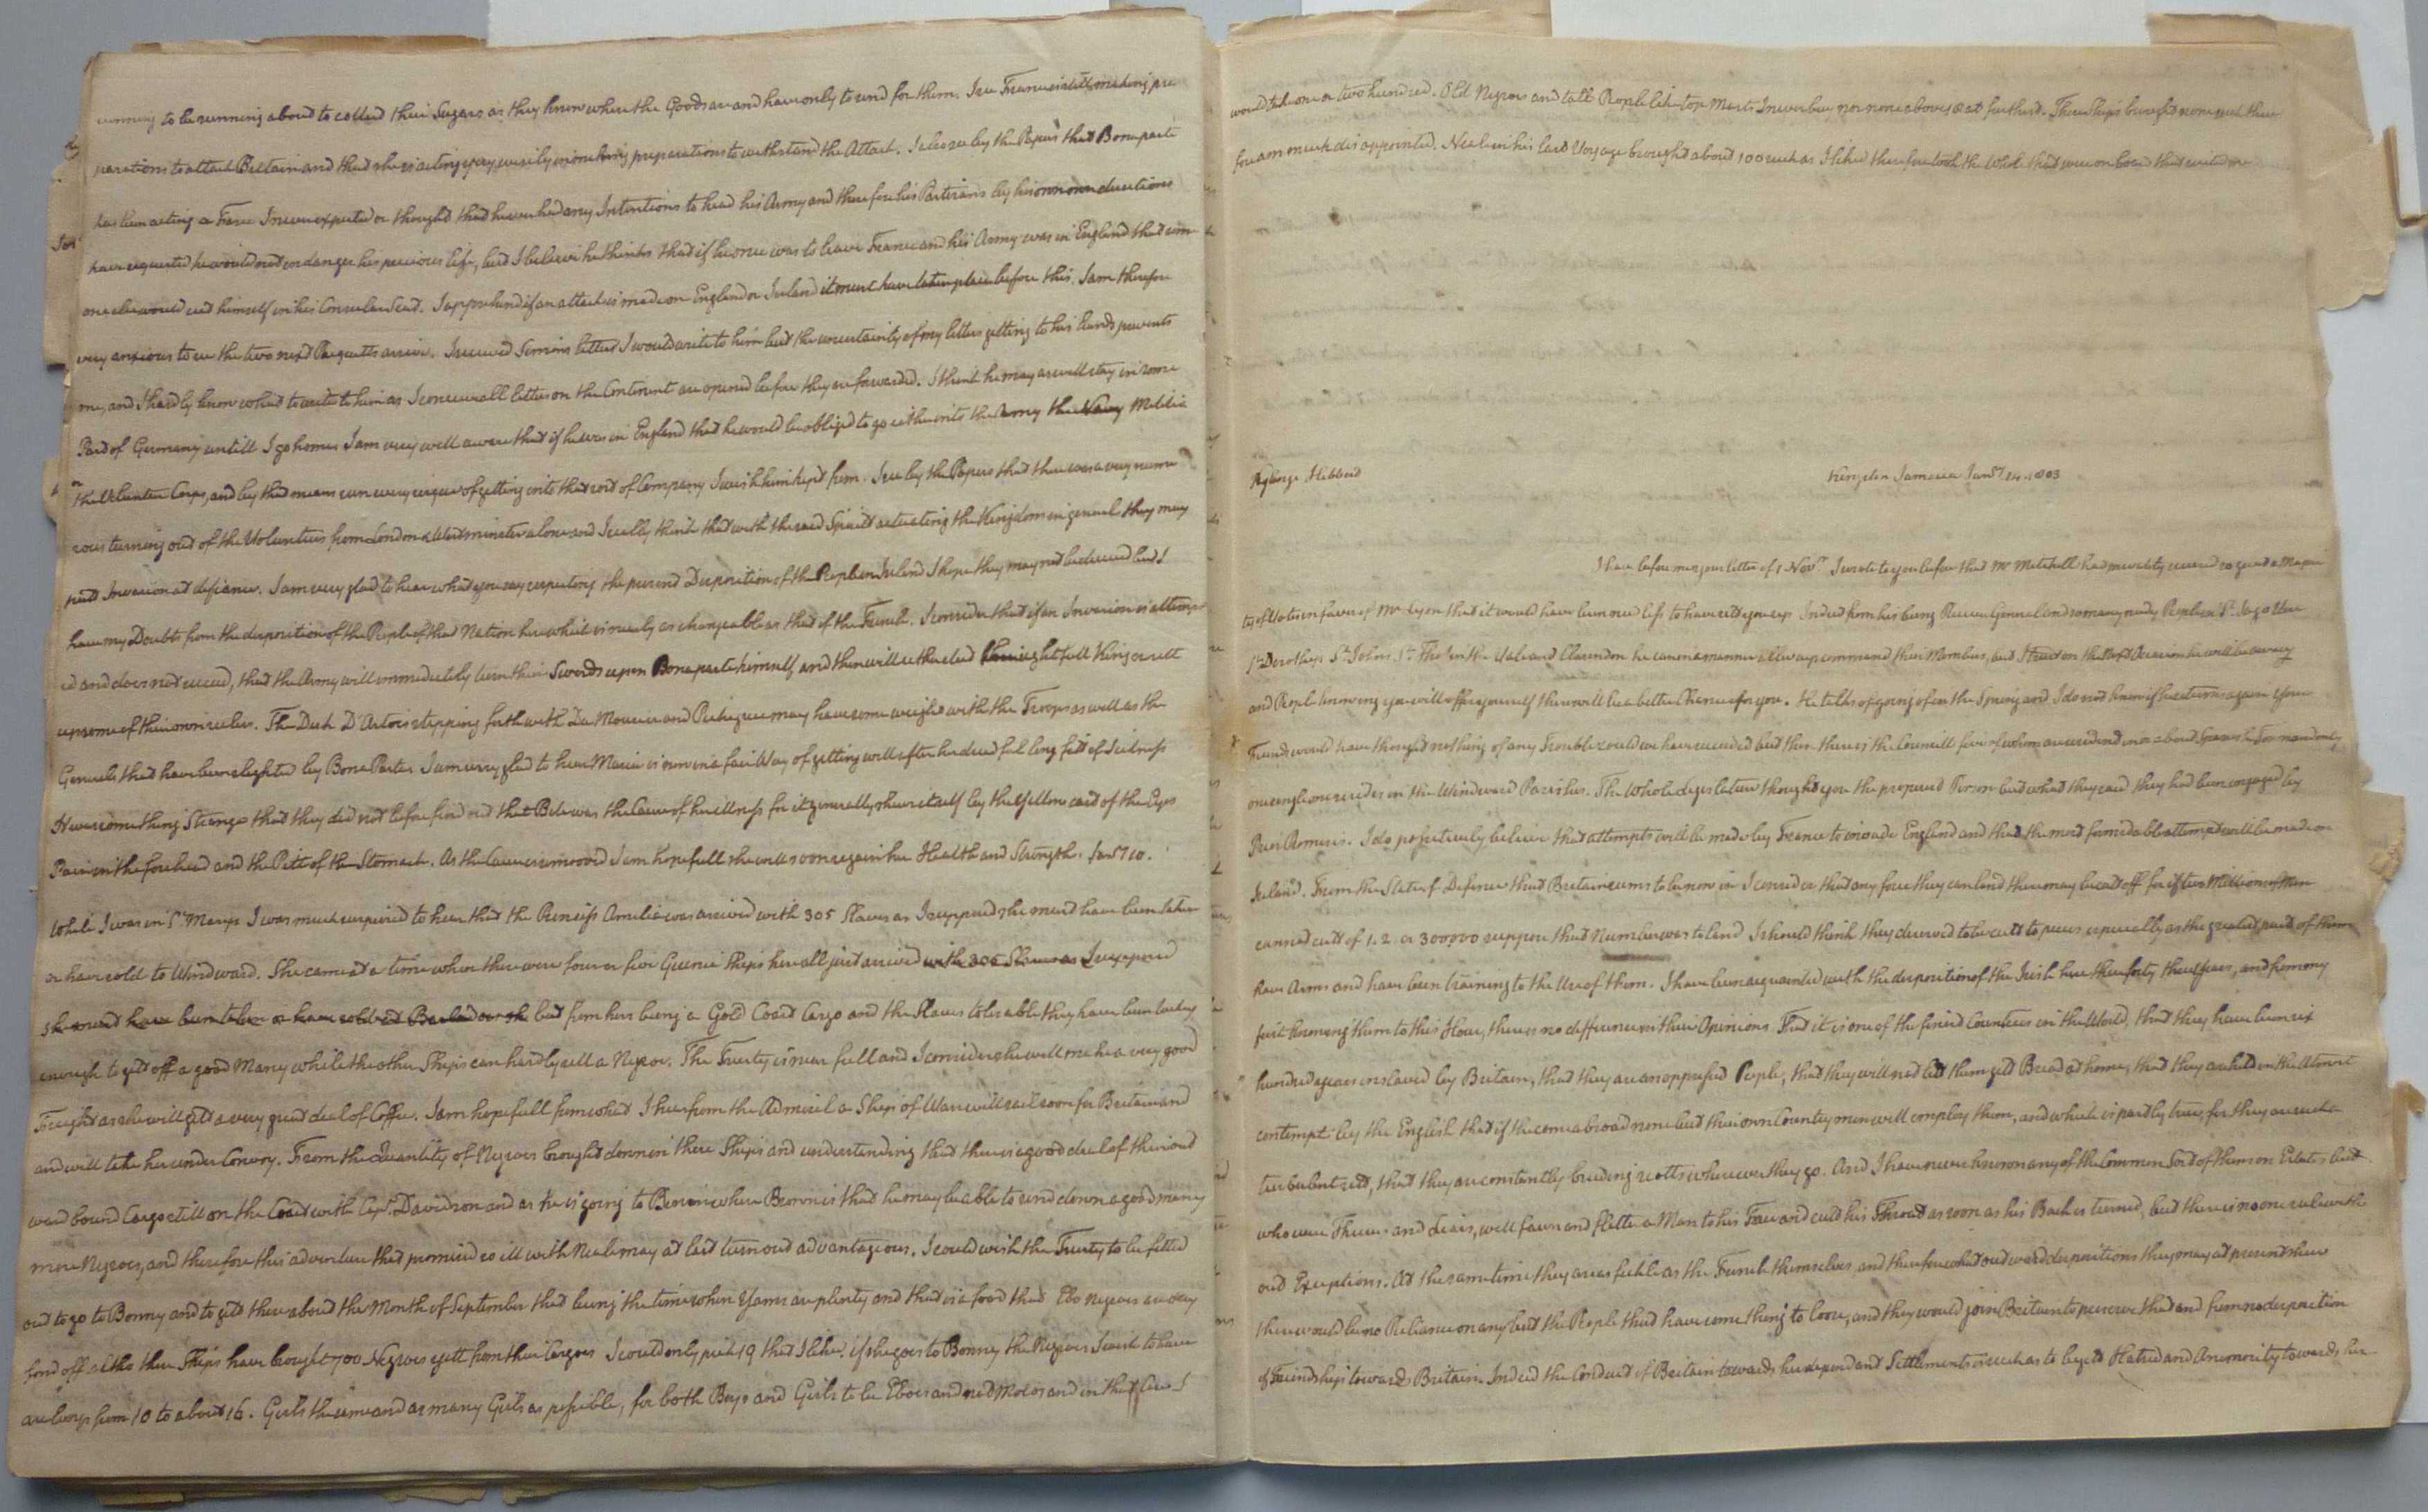 to be running about to collect their Sugars as they know where the Goods are and have only to send for them. I see France is still making pre
parations to attack Britain and that she is acting very wisely in making preparations to withstand the Attack. I also see by the Papers that Bonaparte
has been acting a Farce I never expected or thought that he ever had any Intentions to head his Army and therefore his Partizans by his own directions
have requested he would not endanger his precious life, but I believe he thinks that if he once was to leave France and his Army was in England that some
one else would seat himself in his Consular Seat. I apprehend if an attack is made on England or Ireland it must have taken place before this. I am therefore
very anxious to see the two next Pacquetts arrive. I received letter I would write to him but the uncertainty of my letters getting to his hands prevents
me, and I hardly know what to write to him as I conceive all letters on the Continent are opened before they are forwarded. I think he may as well stay in some
Part of Germany untill I go home I am very well aware that if he was in England that he would be obliged to go either into the Army the Navy Militia
or the Volunteer Corps, and by that means run every risque of getting into that sort of Company I wish him kept from. I see by the Papers that there was a very nume
rous turning out of the Volunteers from London & Westminster alone and I really think that with the said Spirit actuating the Kingdom in general they may
put Invasion at defiance. I am very glad to hear what you say respecting the present Disposition of the People in Ireland I hope they may not be deceived but I
have my Doubts from the disposition of the People of that Nation here which is nearly as changeable as that of the French. I consider that if an Invasion is attempt
ed and does not succeed, that the Army will immediately turn their Swords upon Bonaparte himself and then will either elect their rightfull King or sett
up some of their own rulers. The Duke D'Artois stepping forth with Du Mourier and Pichegrue may have some weight with the Troops as well as the
Generals that have been slighted by BoneParte. I am very glad to hear Maria is now in a fair Way of getting well after her dreadful long fitt of Sickness
It was something Strange that they did not before find out that Bile was the Cause of her illness for it generally shews itself by the Yellow cast of the Eyes
Pain in the forehead and the Pitt of the Stomach. As the Cause is removed I am hopefull she will soon regain her Health and Strength. Jany 10.
While I was in St Marys I was much surprised to hear that the Princess Amelia was arrived with 305 Slaves as I supposed she must have been taken
or have sold to Windward. She came at a time when there were four or five Guinea Ships here all just arrived with 305 Slaves as I supposed
she must have been taken or have sold at but from hers being a Gold Coast Cargo and the Slaves tolerable they have been lucky
enough to get off a good Many while the other Ships can hardly sell a Negroe. The Trusty is near full and I consider she will make a very good
Freight as she will get a very great deal of Coffee. I am hopefull from what I hear from the Admiral a Ship of War will sail soon for Britain and
and will take her under Convoy. From the Quantity of Negroes brought down in these Ships and understanding that there is a good deal of their out
ward bound Cargo still on the Coast with Capt. Davidson and as he is going to Benin where Brown is that he may be able to send down a good many
more Negroes, and therefore this adventure that promised so ill with Neale may at last turn out advantageous. I could wish the Trusty to be fitted
out to go to Bonny and to gett there about the Month of September that being the time when Yams are plenty and that is a food that Ebo Negroes are very
fond off altho these Ships have brought 700 Negroes yett from their Cargoes I could only pick 19 that I liked. if she goes to Bonny the Negroes I wish to have
are boys from 10 to about 16. Girls the same and as many Girls as possible, for both Boys and Girls to be Eboes and not Mocos and in that case I
would take one or two hundred. Old Negroes and tall People like top Masts I never buy nor none above 5 at furthest. These Ships brought none such there
fore am much disappointed. Neale in his last Voyage brought about 100 such as I liked therefore took the whole that were on board that suited me
George Hibbert
Kingston Jamaica Jany 14. 1803
I have before me your letter of 1 Novr I wrote to you before that Mr Mitchell had secured so great a Majori
ty of Votes in favor of Mr Lyon that it would have been need less to have sett you up. Indeed from his being Receiver General and so many needy People in St Jago
St Dorothys St Johns St Thos in the Vale and Clarendon he can in a manner allways command their Members, but I trust on the next Occasion he will be away
and People knowing you will offer yourself there will be a better Chance for you. He talks of going of in the Spring and I do not know if he returns again Your
Friends would have thought nothing of any Trouble could we have succeeded but then there is the Council few of whom are resident
one single one resides in the Windward Parishes. The Whole Legislature thought you the properest Person but what they said they had been engaged by
Prior Promises. I do positively believe that attempts will be made by France to invade England and that the most formidable attempt will be made on
Ireland. From the State of Defence that Britain seems to be now in I consider that any force they can land there may be cutt off for if two Millions of Men
cannot cutt of 1. 2. or 300000 suppose that Number was to land I should think they deserved to be cutt to pieces especially as the greatest part of them
have Arms and have been training to the Use of them. I have been acquainted with the disposition of the Irish here these forty three Years, and from my
first knowing them to this Hour, there is no difference in their Opinions. That it is one of the finest Countries in the World, that they have been six
hundred years enslaved by Britain, that they are an oppressed People, that they will not lett them gett Bread at home, that they are held in the Utmost
contempt by the English that if the come abroad none but their own Country men will employ them, and which is partly true, for they are such a
turbulent sett, that they are constantly breeding riotts wherever they go. And I have never known any of the Common Sort of them on Estates but
who were Thieves and Liars, will fawn and flatter a Man to his Face and cutt his Throat as soon as his Back is turned, but there is no one rule with
out Exceptions. At the same time they are as fickle as the French themselves, and therefore what outward dispositions they may at present shew
there would be no Reliance on any but the People that have some thing to loose, and they would join Britain to preserve that and from no disposition
of Friendship towards Britain. Indeed the Conduct of Britain towards her dependant Settlements is such as to begett Hatred and Animosity towards her